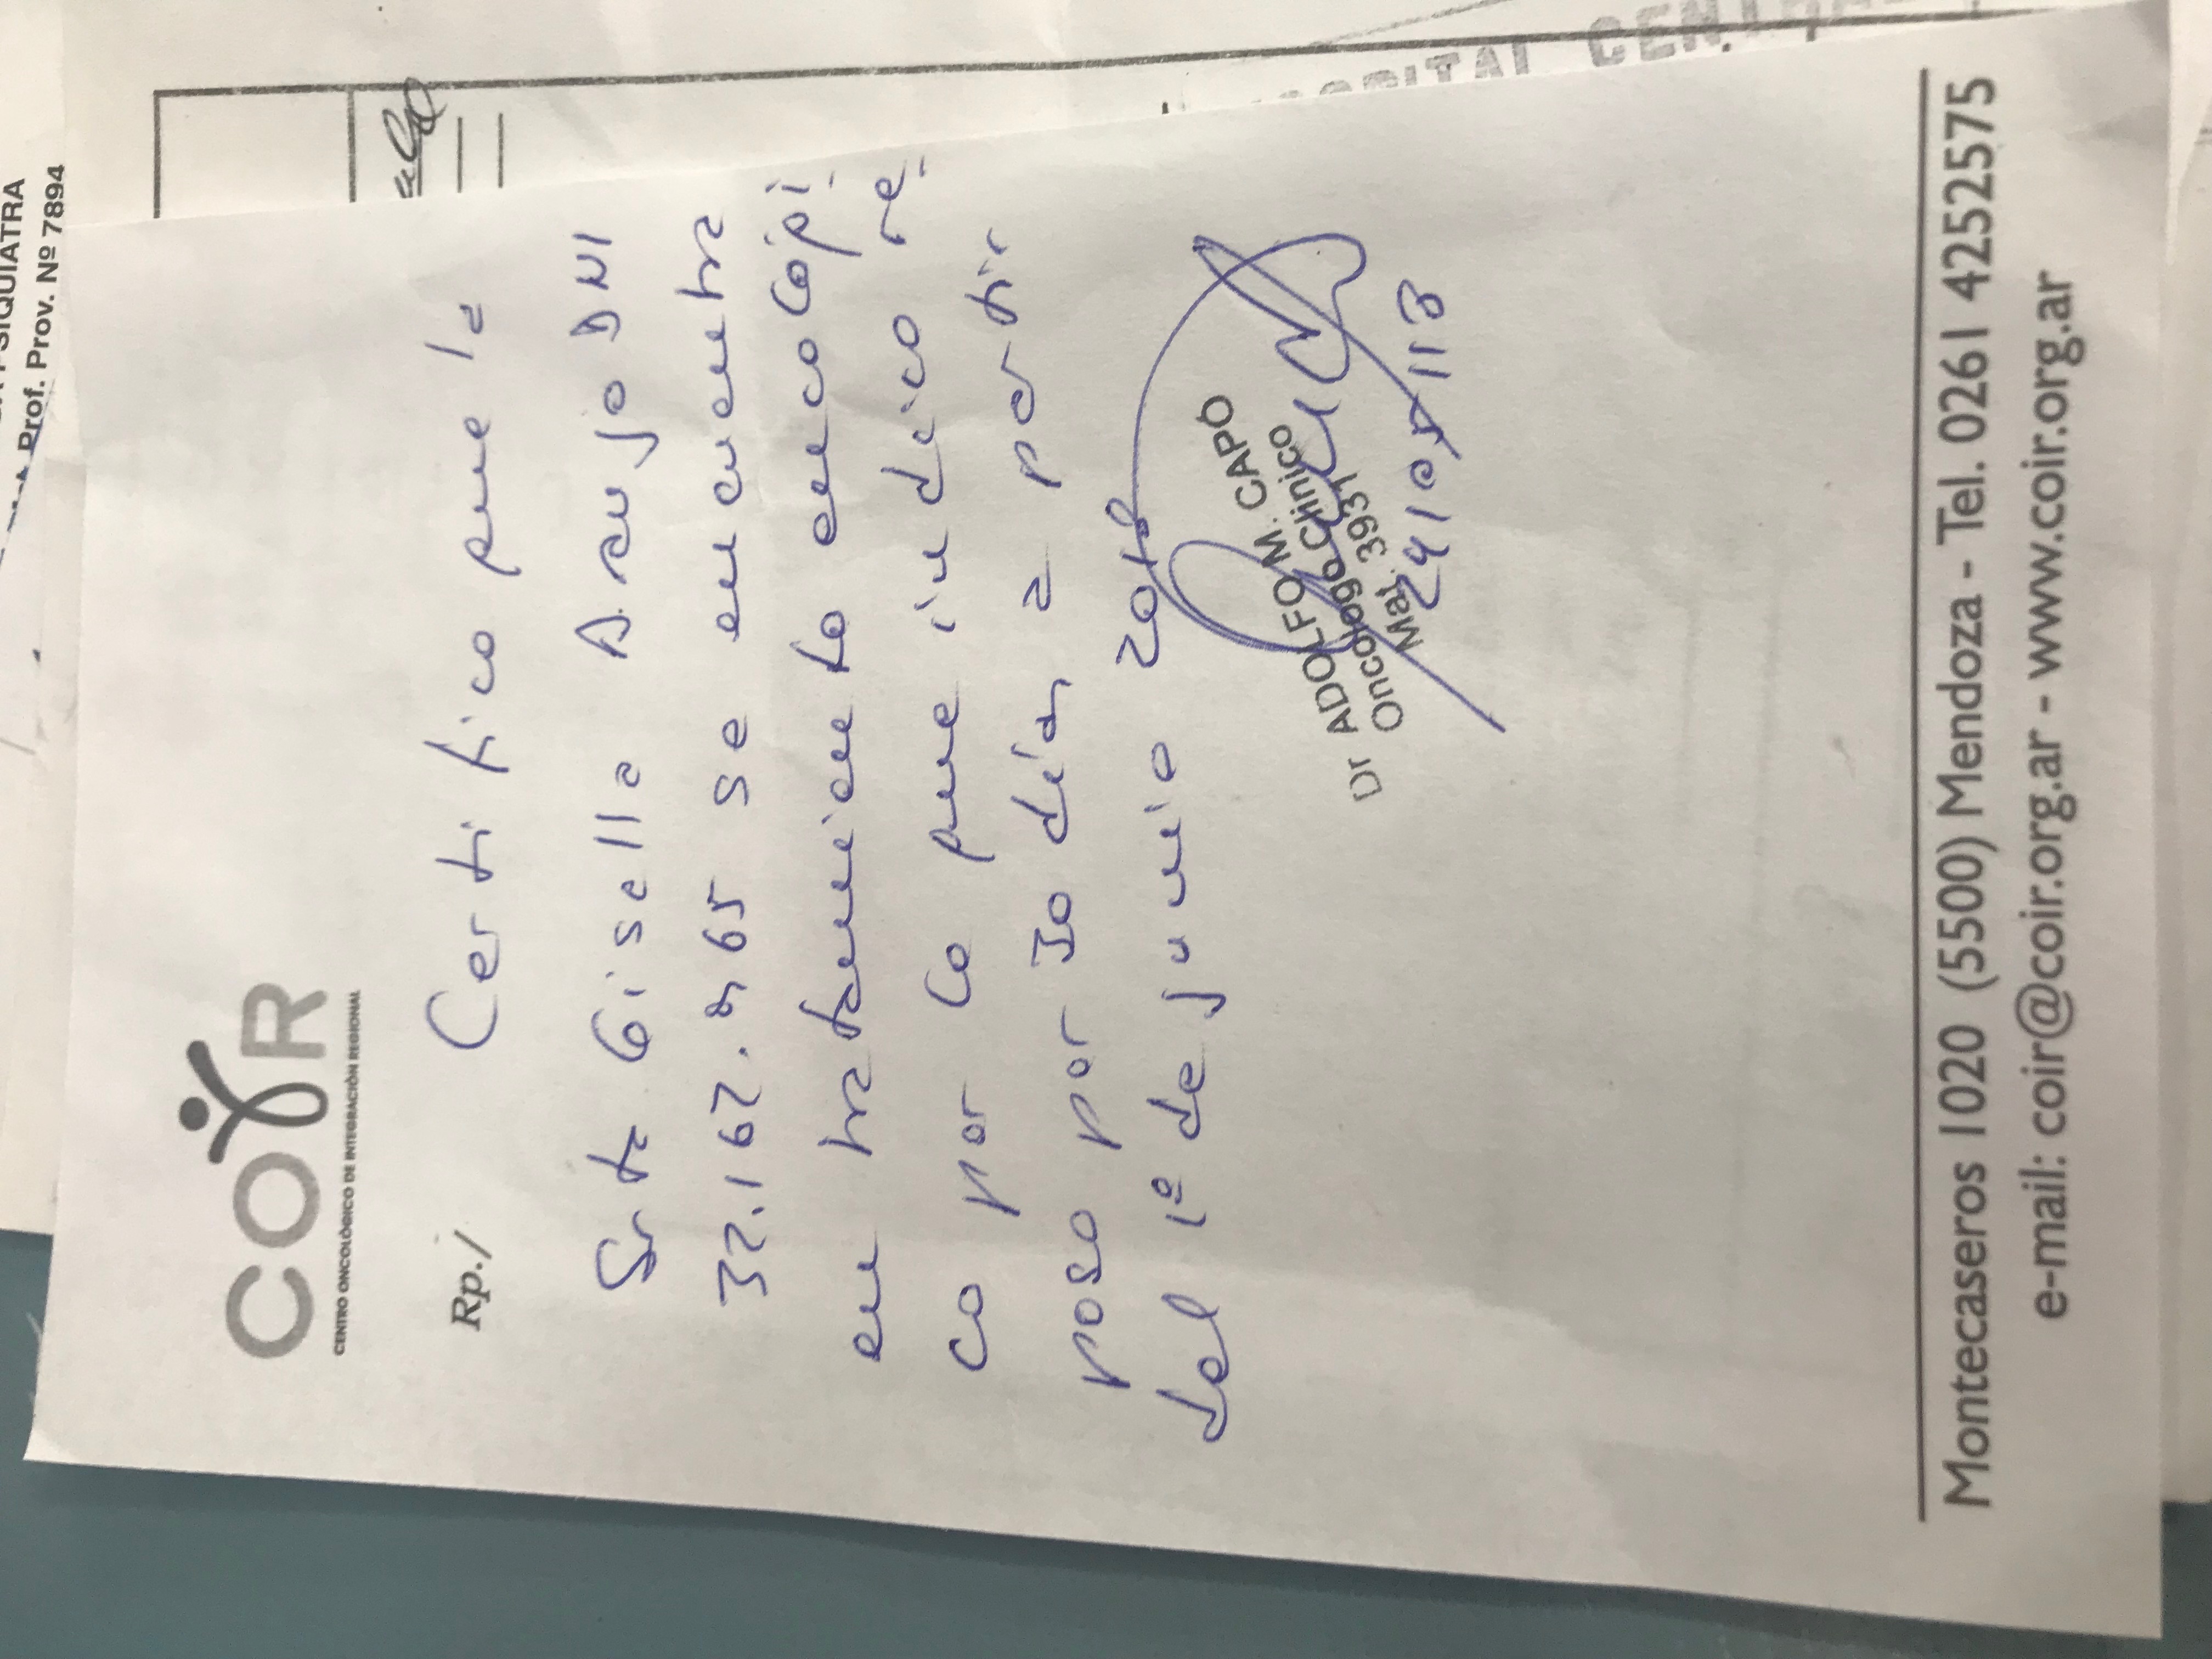 PSIQUIATRA
Prof. Prov. Nº 7894
COIR
CENTRO ONCOLÓGICO DE INTEGRACIÓN REGIONAL
Rp./ Certifico que la
Srta Gisella Araujo DNI
32.167.965 se encuentra
en tratamiento oncológi
co por lo que indico re
poso por 30 días a partir
del 1º de junio 2018
Dr ADOLFO M. CAPÓ
Oncologo Clinico
Mat. 3931
24/05/18
Montecaseros 1020 (5500) Mendoza - Tel. 0261 4252575
e-mail: coir@coir.org.ar - www.coir.org.ar